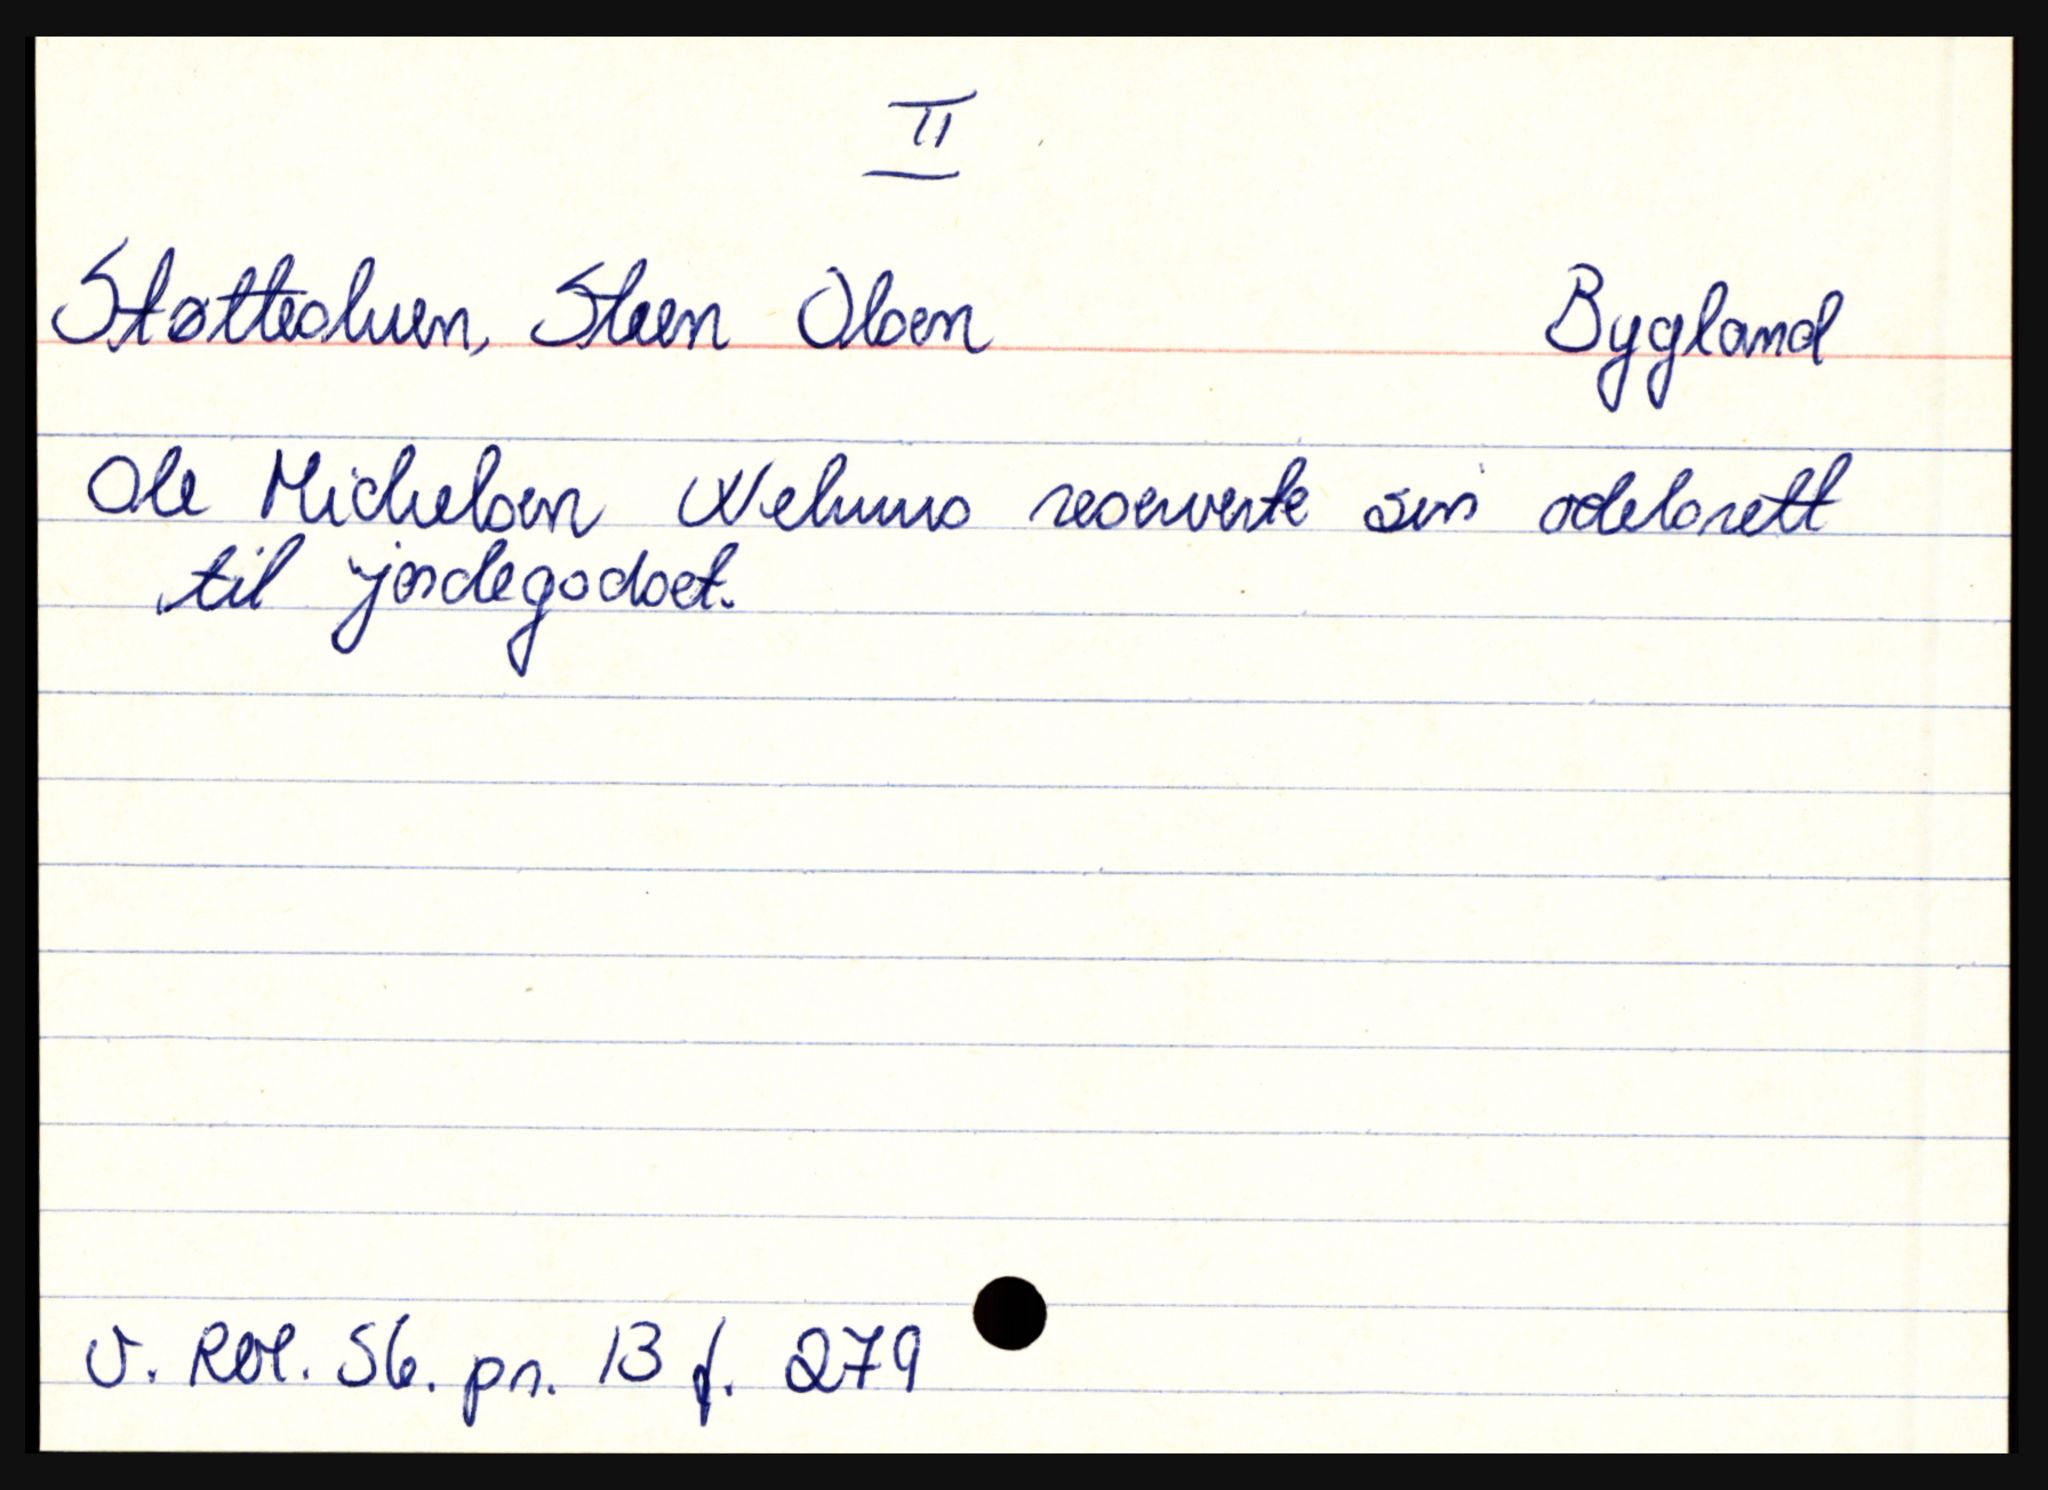 II
Støtteduen, Steen Olsen Bygland
Ole Michelsen Nelmus reserverte sin odelsrett
til jordegodset.
V. Rål. Sb. pr. 13 f. 279